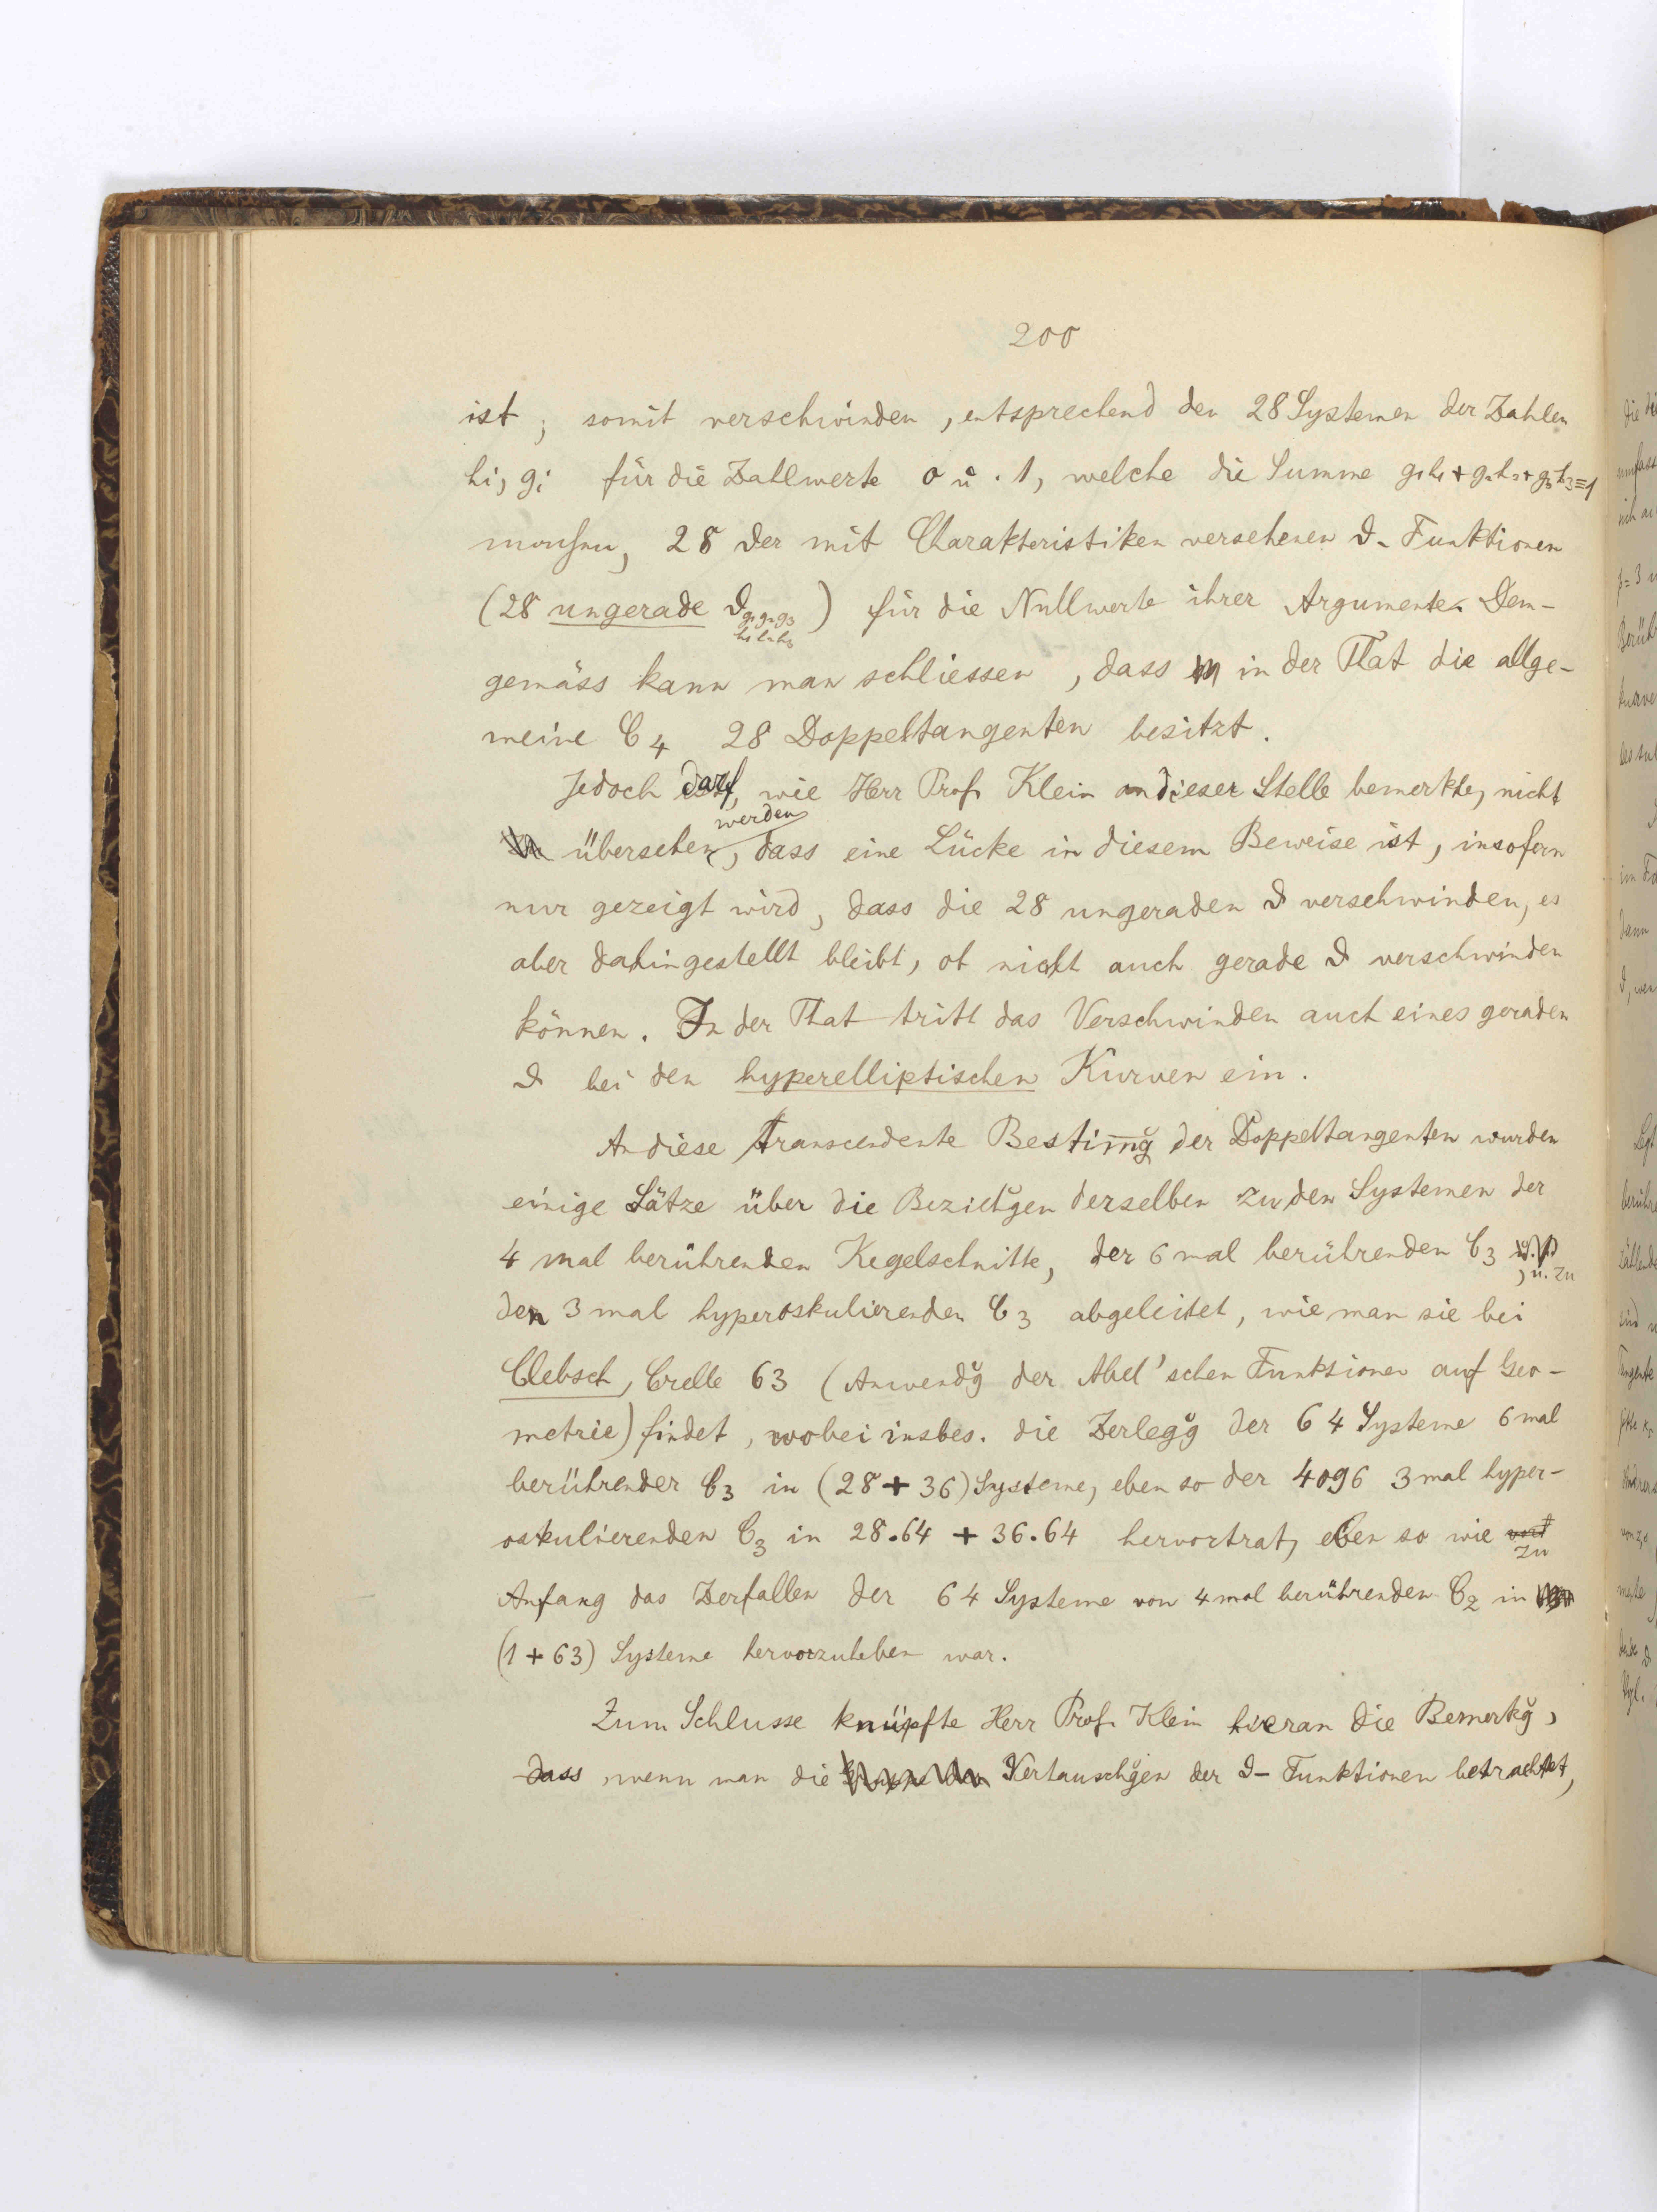 200
ist; somit verschwinden, entsprechend den 28 Systemen der Zahlen
hi, gi für die Zahlwerte 0 u. 1, welche die Summe g1h1 + g2h2 + g3h3 ≡ 1
machen, 28 der mit Charakteristiken versehenen ϑ-Funktionen
(28 ungerade ϑ g1g2g3 h1h2h3) für die Nullwerte ihrer Argumente. Dem-
gemäss kann man schliessen, dass in der That die allge-
meine C4 28 Doppeltangenten besitzt.
Jedoch darf, wie Herr Prof. Klein an dieser Stelle bemerkte, nicht
übersehen werden, dass eine Lücke in diesem Beweise ist, insofern
nur gezeigt wird, dass die 28 ungeraden ϑ verschwinden, es
aber dahingestellt bleibt, ob nicht auch gerade ϑ verschwinden
können. In der That tritt das Verschwinden auch eines geraden
ϑ bei den hyperelliptischen Kurven ein.
An diese transcendente Bestim̅ğ der Doppeltangenten wurden
einige Sätze über die Beziehğen derselben zu den Systemen der
4 mal berührenden Kegelschnitte, der 6 mal berührenden C3, u. zu
den 3 mal hyperoskulierenden C3 abgeleitet, wie man sie bei
Clebsch, Crelle 63 (Anwendğ der Abel'schen Funktionen auf Geo-
metrie) findet, wobei insbes. die Zerlegğ der 64 Systeme 6 mal
berührender C3 in (28 + 36) Systeme, eben so der 4096 3 mal hyper-
oskulierenden C3 in 28.64 + 36.64 hervortrat, eben so wie zu
Anfang das Zerfallen der 64 Systeme von 4 mal berührenden C2 in
(1 + 63) Systeme hervorzuheben war.
Zum Schlusse knüpfte Herr Prof. Klein hieran die Bemerkğ,
dass, wenn man die Vertauschğen der ϑ-Funktionen betrachtet,